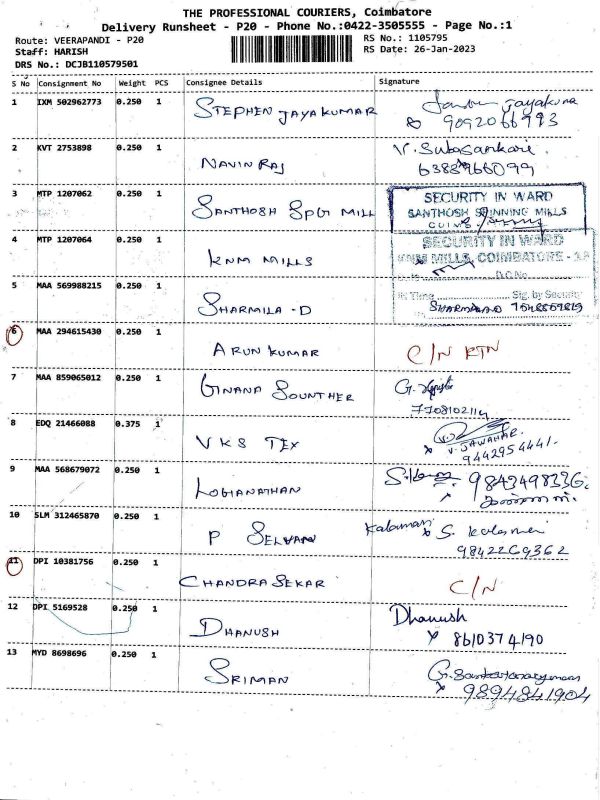 THE PROFESSIONAL COURIERS, Coimbatore
Delivery Runsheet - P20 - Phone No.:0422-3505555 - Page No.:1
Route: VEERAPANDI - P20 RS No.: 1105795
Staff: HARISH RS Date: 26-Jan-2023
DRS No.: DCJB110579501
S No Consignment No Weight PCS Consignee Details Signature
1 IXM 502962773 0.250 1 STEPHEN JAYAKUMAR Jayakuma
9092066993
2 KVT 2753898 0.250 1 NAVIN RAJ V. Subasankari
6383966099
3 MTP 1207062 0.250 1 SANTHOSH SPG MILL SECURITY IN WARD
SANTHOSH SPINNING MILLS
4 MTP 1207064 0.250 1 KNM MILLS SECURITY IN WARD
KNM MILLS, COIMBATORE - 18
5 MAA 569988215 0.250 1 SHARMILA -D In Time Sig. by Security
6 MAA 294615430 0.250 1 ARUN KUMAR C/N RTN
7 MAA 859065012 0.250 1 GNANA SOUNTHER G.
7708102114
8 EDQ 21466088 0.375 1 VKS TEX V. JAWAHAR.
9442954441.
9 MAA 568679072 0.250 1 LOGIANATHAN 9843498336
10 SLM 312465870 0.250 1 P SELVAN Kalamani S. Kalamani
9842269362
11 DPI 10381756 0.250 1 CHANDRA SEKAR C/N
12 DPI 5169528 0.250 1 DHANUSH Dhanush
8610374190
13 MYD 8698696 0.250 1 SRIMAN G. Sankaranarayanan
9894841904